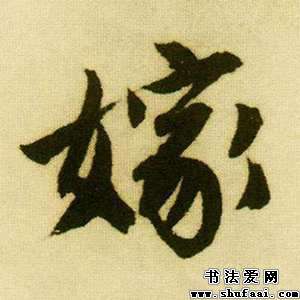 嫁
书法爱网
www.shufaai.com